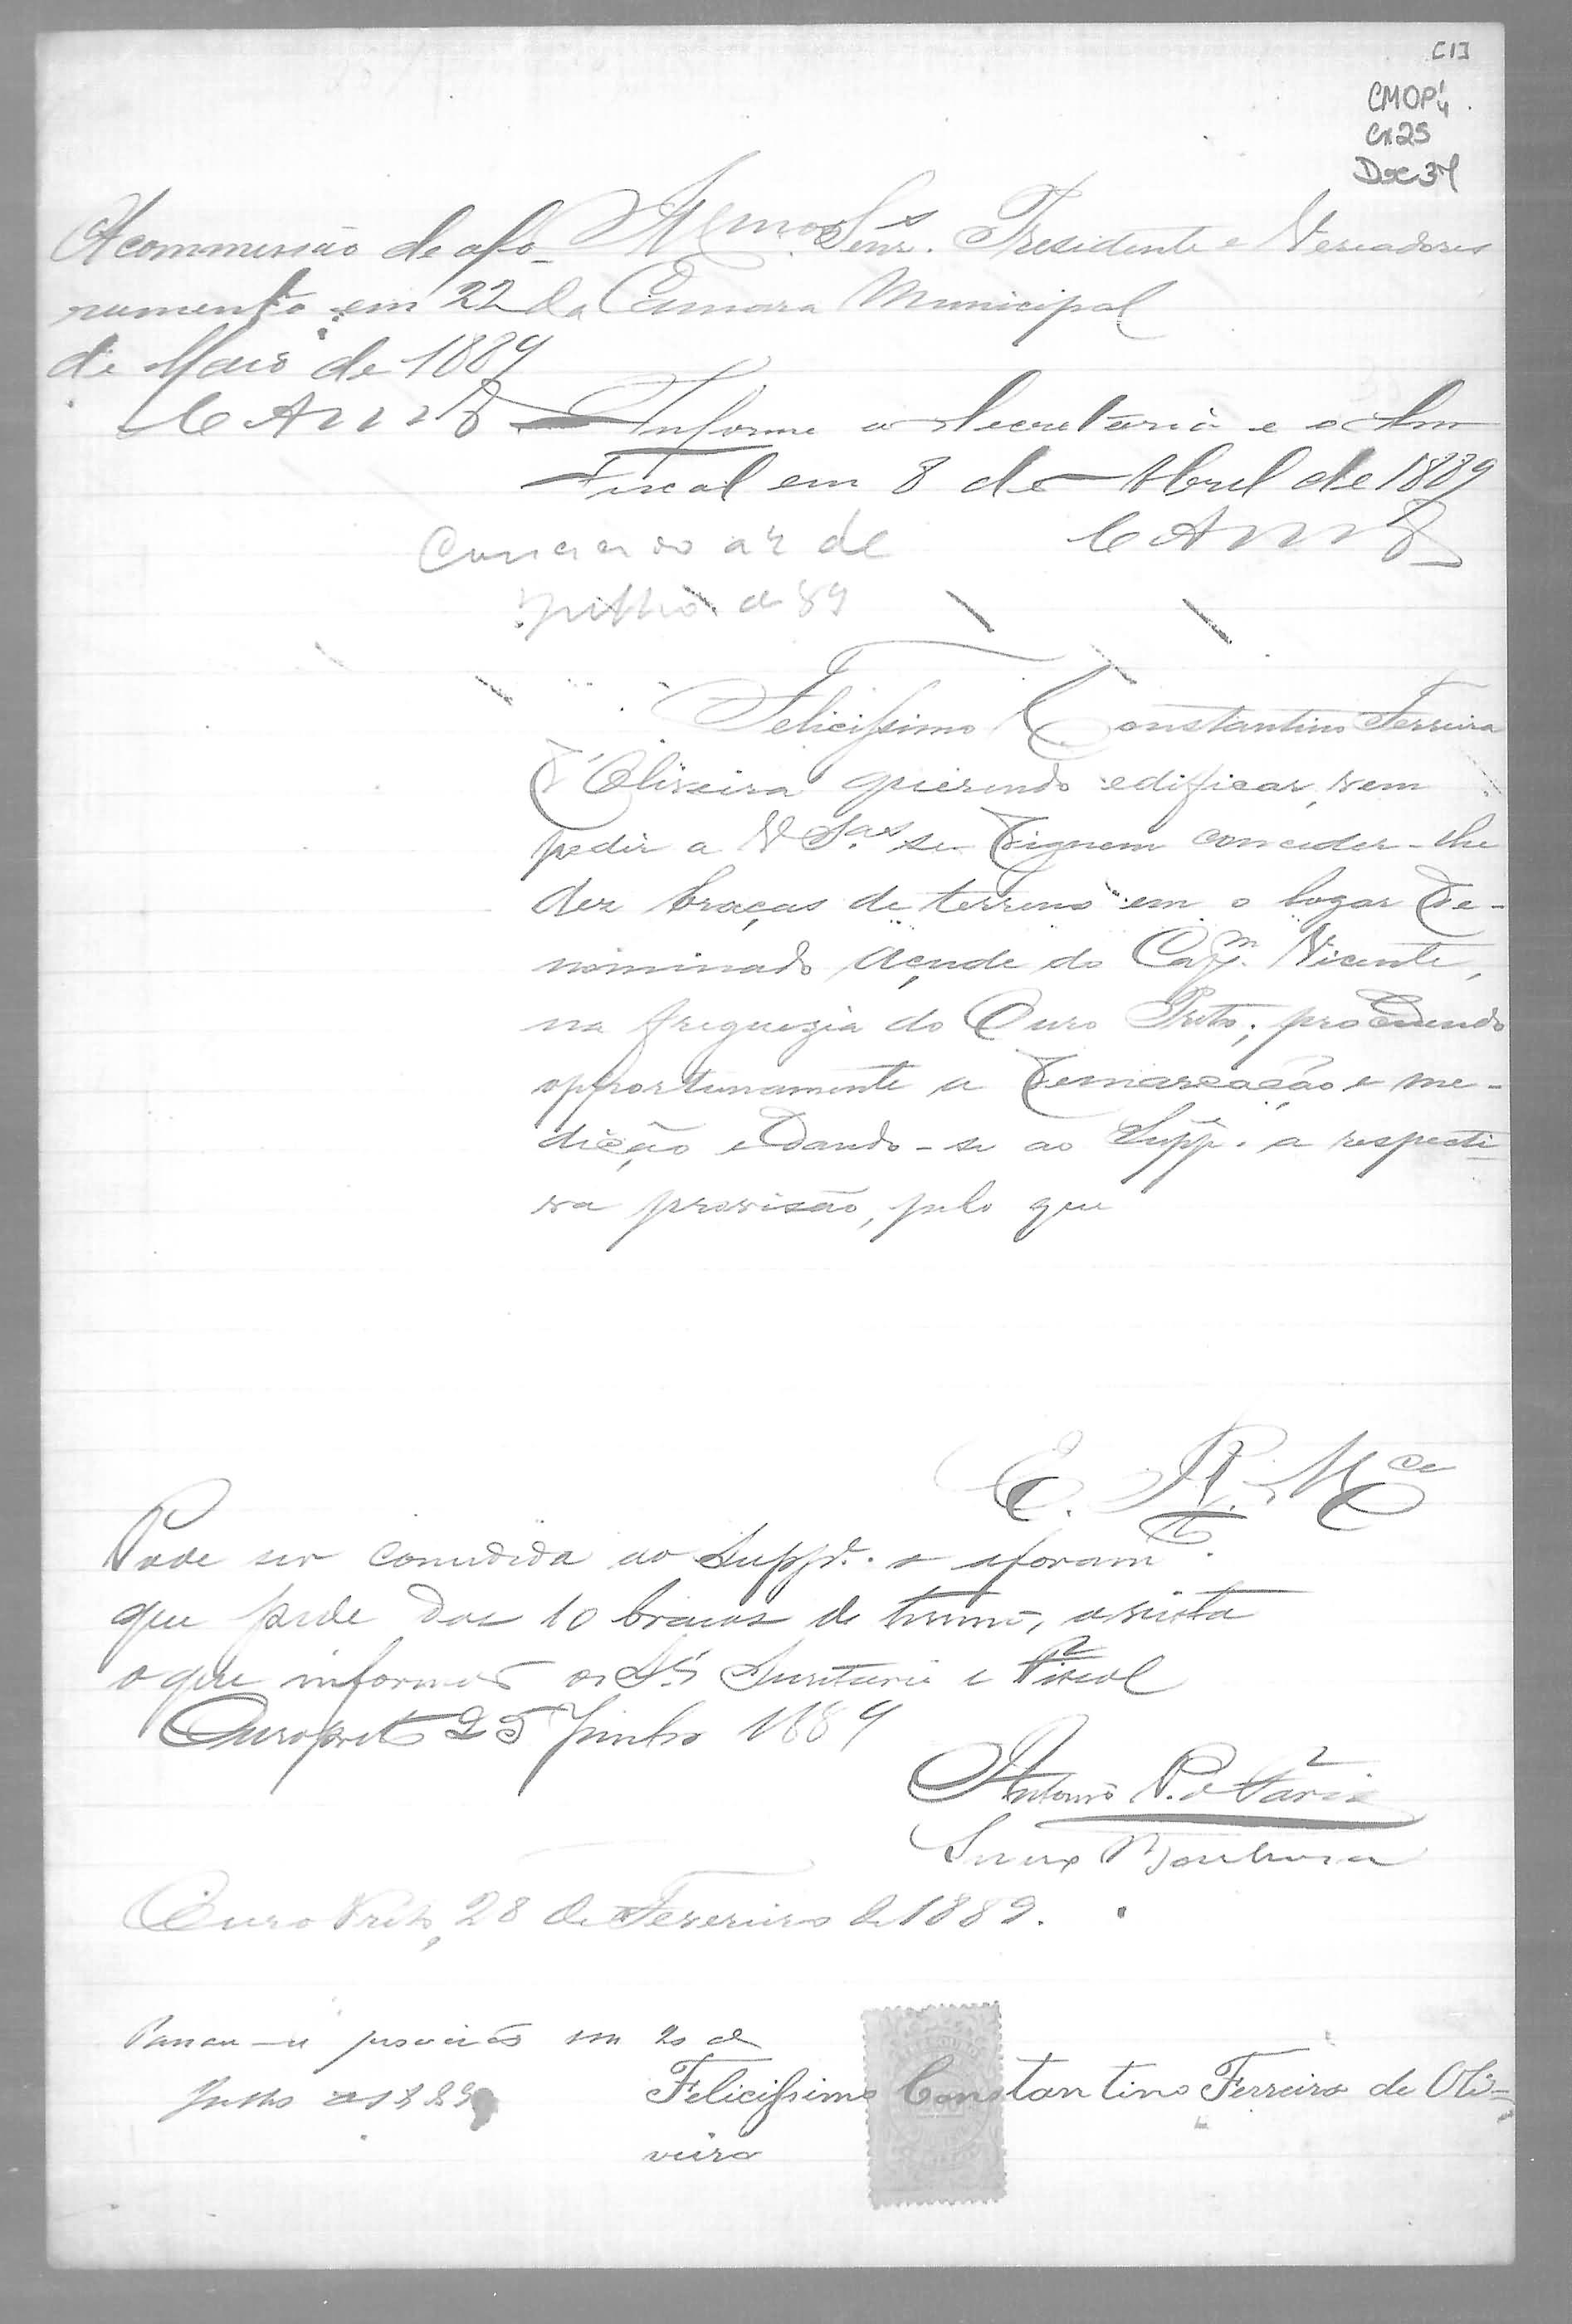 C13
CMOP
Cx25
Doc 34
Illmos. Senrs. Presidente e Vereadores
da Camara Municipal
A commissão de afo-
ramento em 22
de Maio de 1889
Informe a Secretaria e o
Fiscal em 8 de Abril de 1889
de
Julho de 89
Felicissimo Constantino Ferreira
d'Oliveira querendo edificar, vem
pedir a V Sas. se dignem conceder-lhe
dez braças de terreno em o logar de-
nominado Açude do Capm. Vicente,
na freguezia do Ouro Preto; procedendo
opportunamente a demarcação e me-
dição e dando-se ao Suppe. a respecti-
va provisão, pelo que
E. R. Mce
Pode ser concedida ao Suppe. o aforam
que pede das 10 braças de terreno, a vista
o que informão os Srs Secretario e Fiscal
Ouropreto 25 Junho 1889
Antonio P. de Faria
Ouro Preto, 28 de Fevereiro de 1889.
Passou-se provisão em 20 de
Julho de 1889
Felicissimo Constantino Ferreira de Oli-
veira